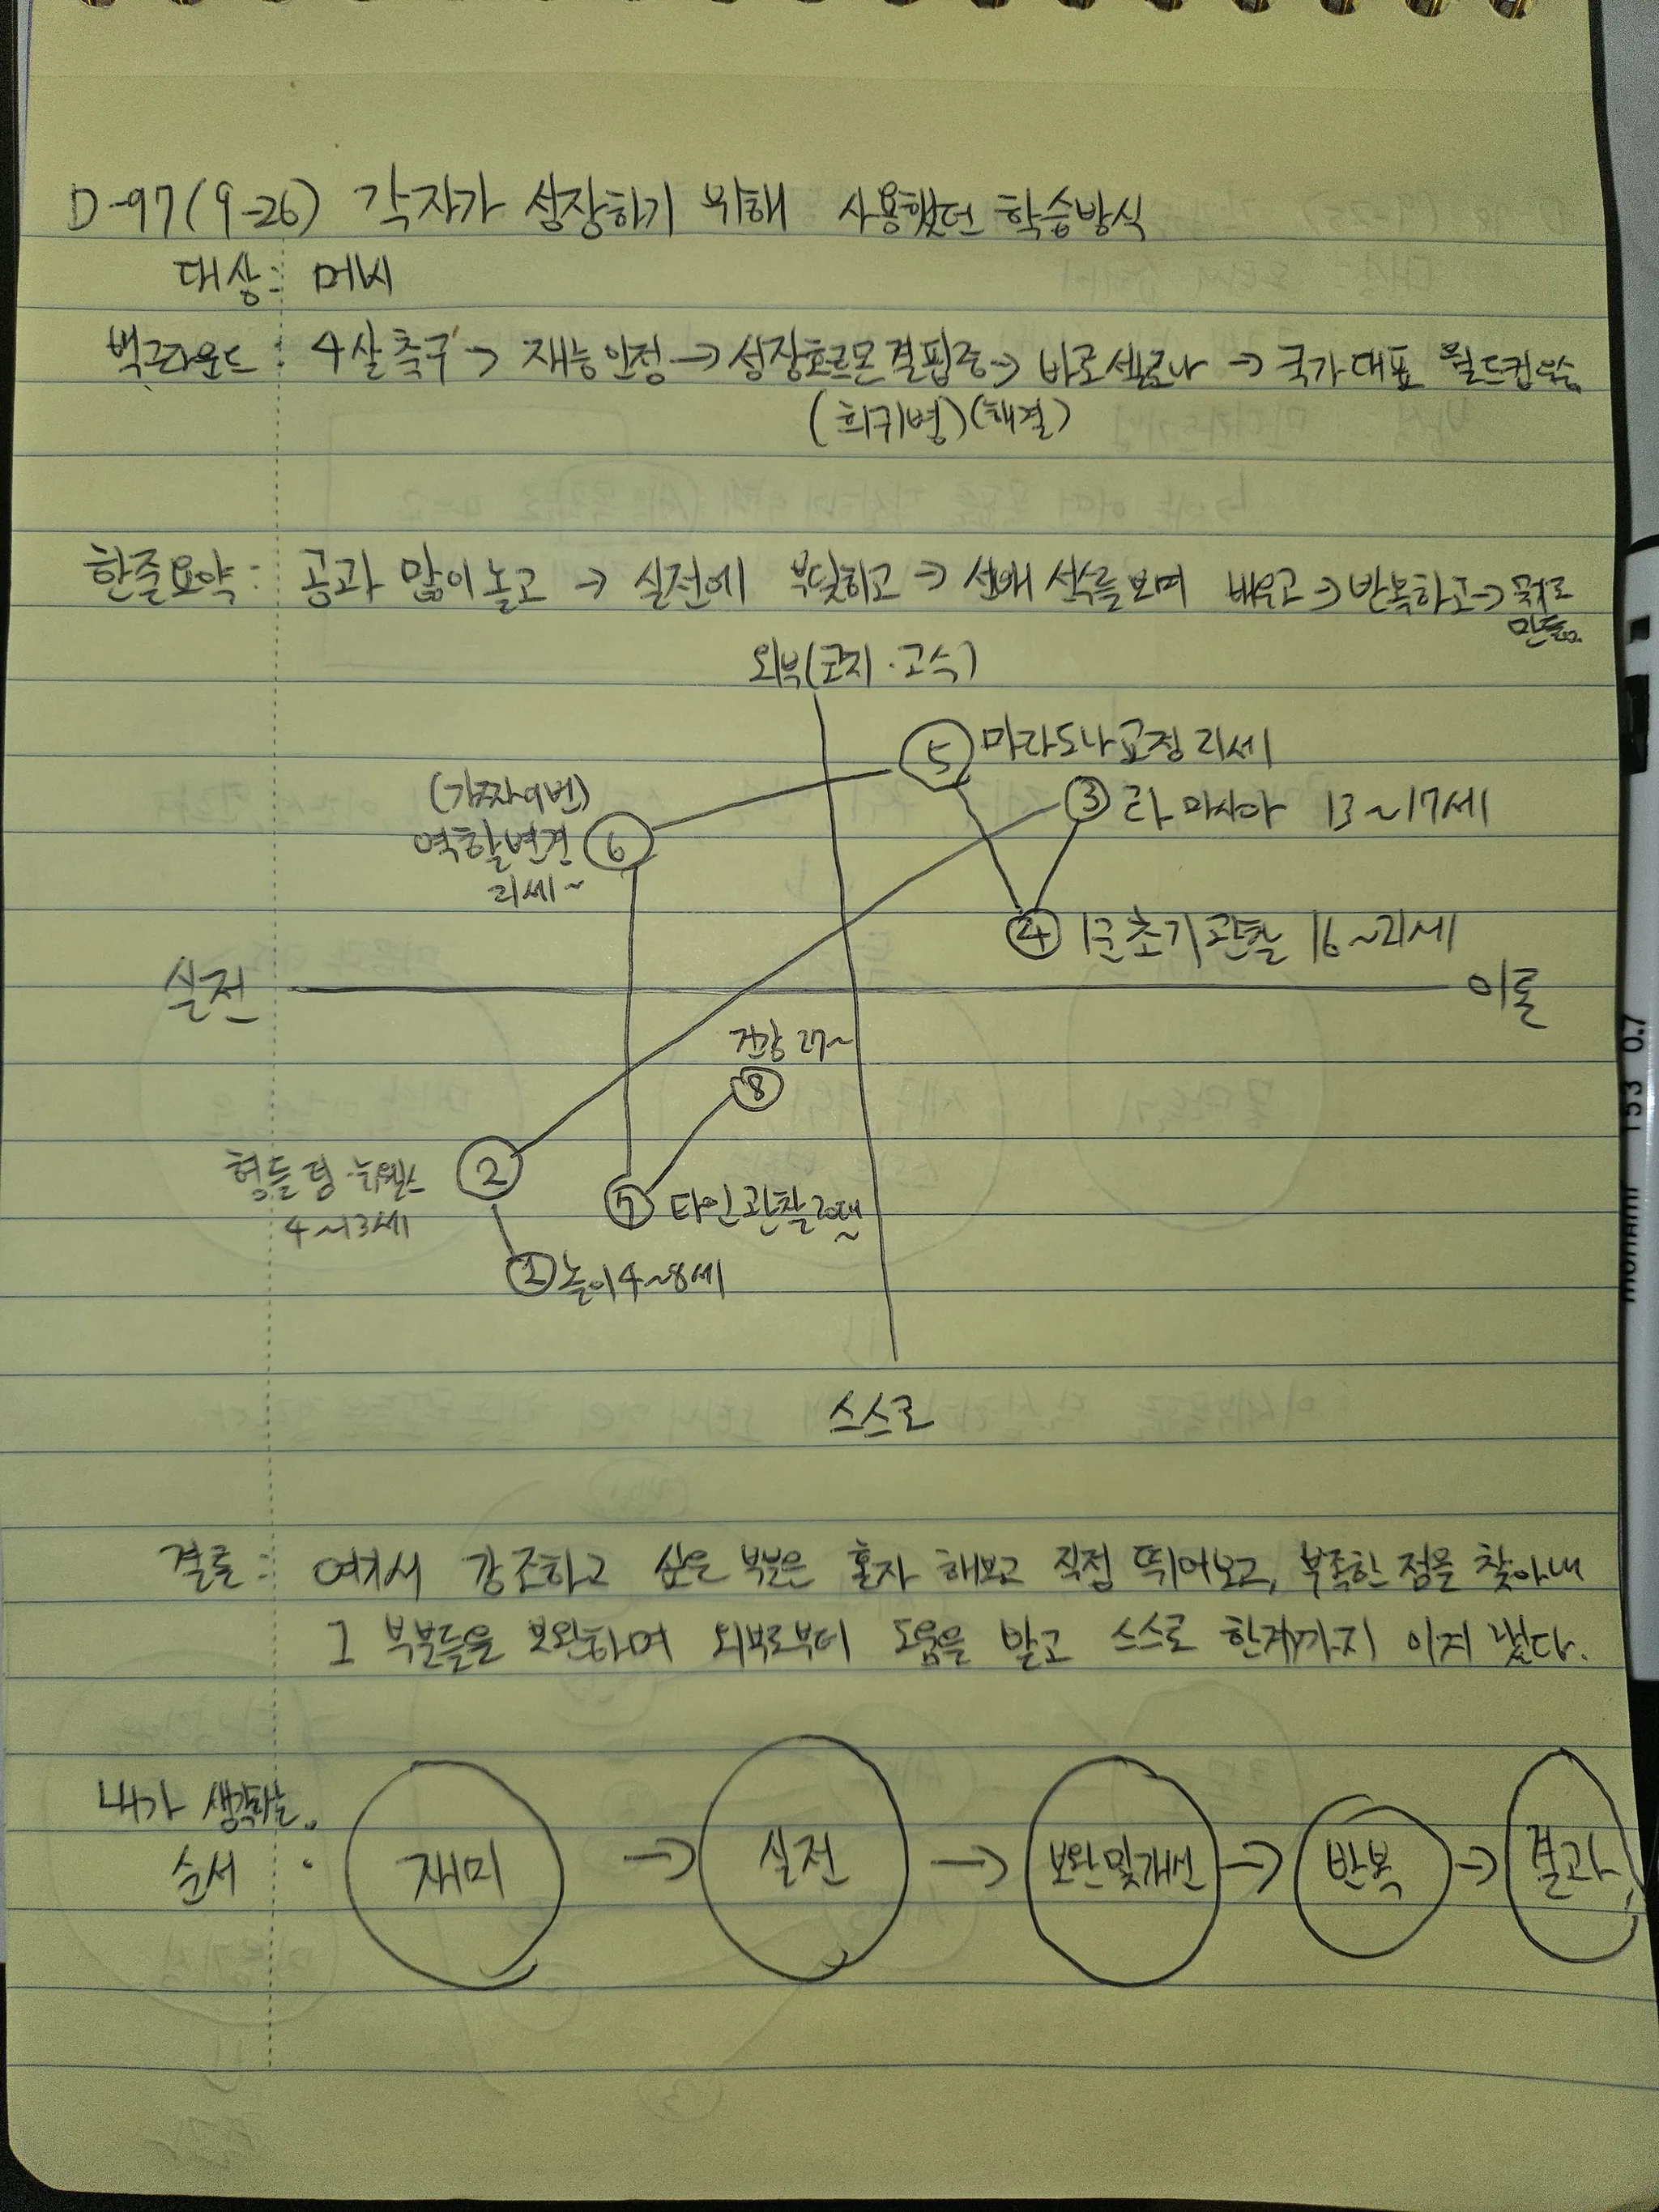 D-97(9-26) 각자가 성장하기 위해 사용했던 학습방식
대상: 메시
백그라운드: 4살 축구 → 재능 인정 → 성장호르몬 결핍증 → 바로셀로나 → 국가대표 월드컵 우승
(희귀병)(해결)
한줄요약: 공과 많이 놀고 → 실전에 부딪히고 → 선배 선수를 보며 배우고 → 반복하고 →
만듦.
외부(코치·고수)
⑤ 마라도나 교정 21세
(가짜9번)
③ 라 마시아 13~17세
역할변경 ⑥
21세~
④ 1군 초기 관찰 16~21세
실전
이론
건강 27~
⑧
형들 팀·뉴웰스 ②
4~13세
⑦ 타인관찰 20대~
① 놀이 4~8세
스스로
결론: 여기서 강조하고 싶은 부분은 혼자 해보고 직접 뛰어보고, 부족한 점을 찾아내
그 부분들을 보완하며 외부로부터 도움을 받고 스스로 한계까지 이겨 냈다.
내가 생각하는
순서 : 재미 → 실전 → 보완 및 개선 → 반복 → 결과